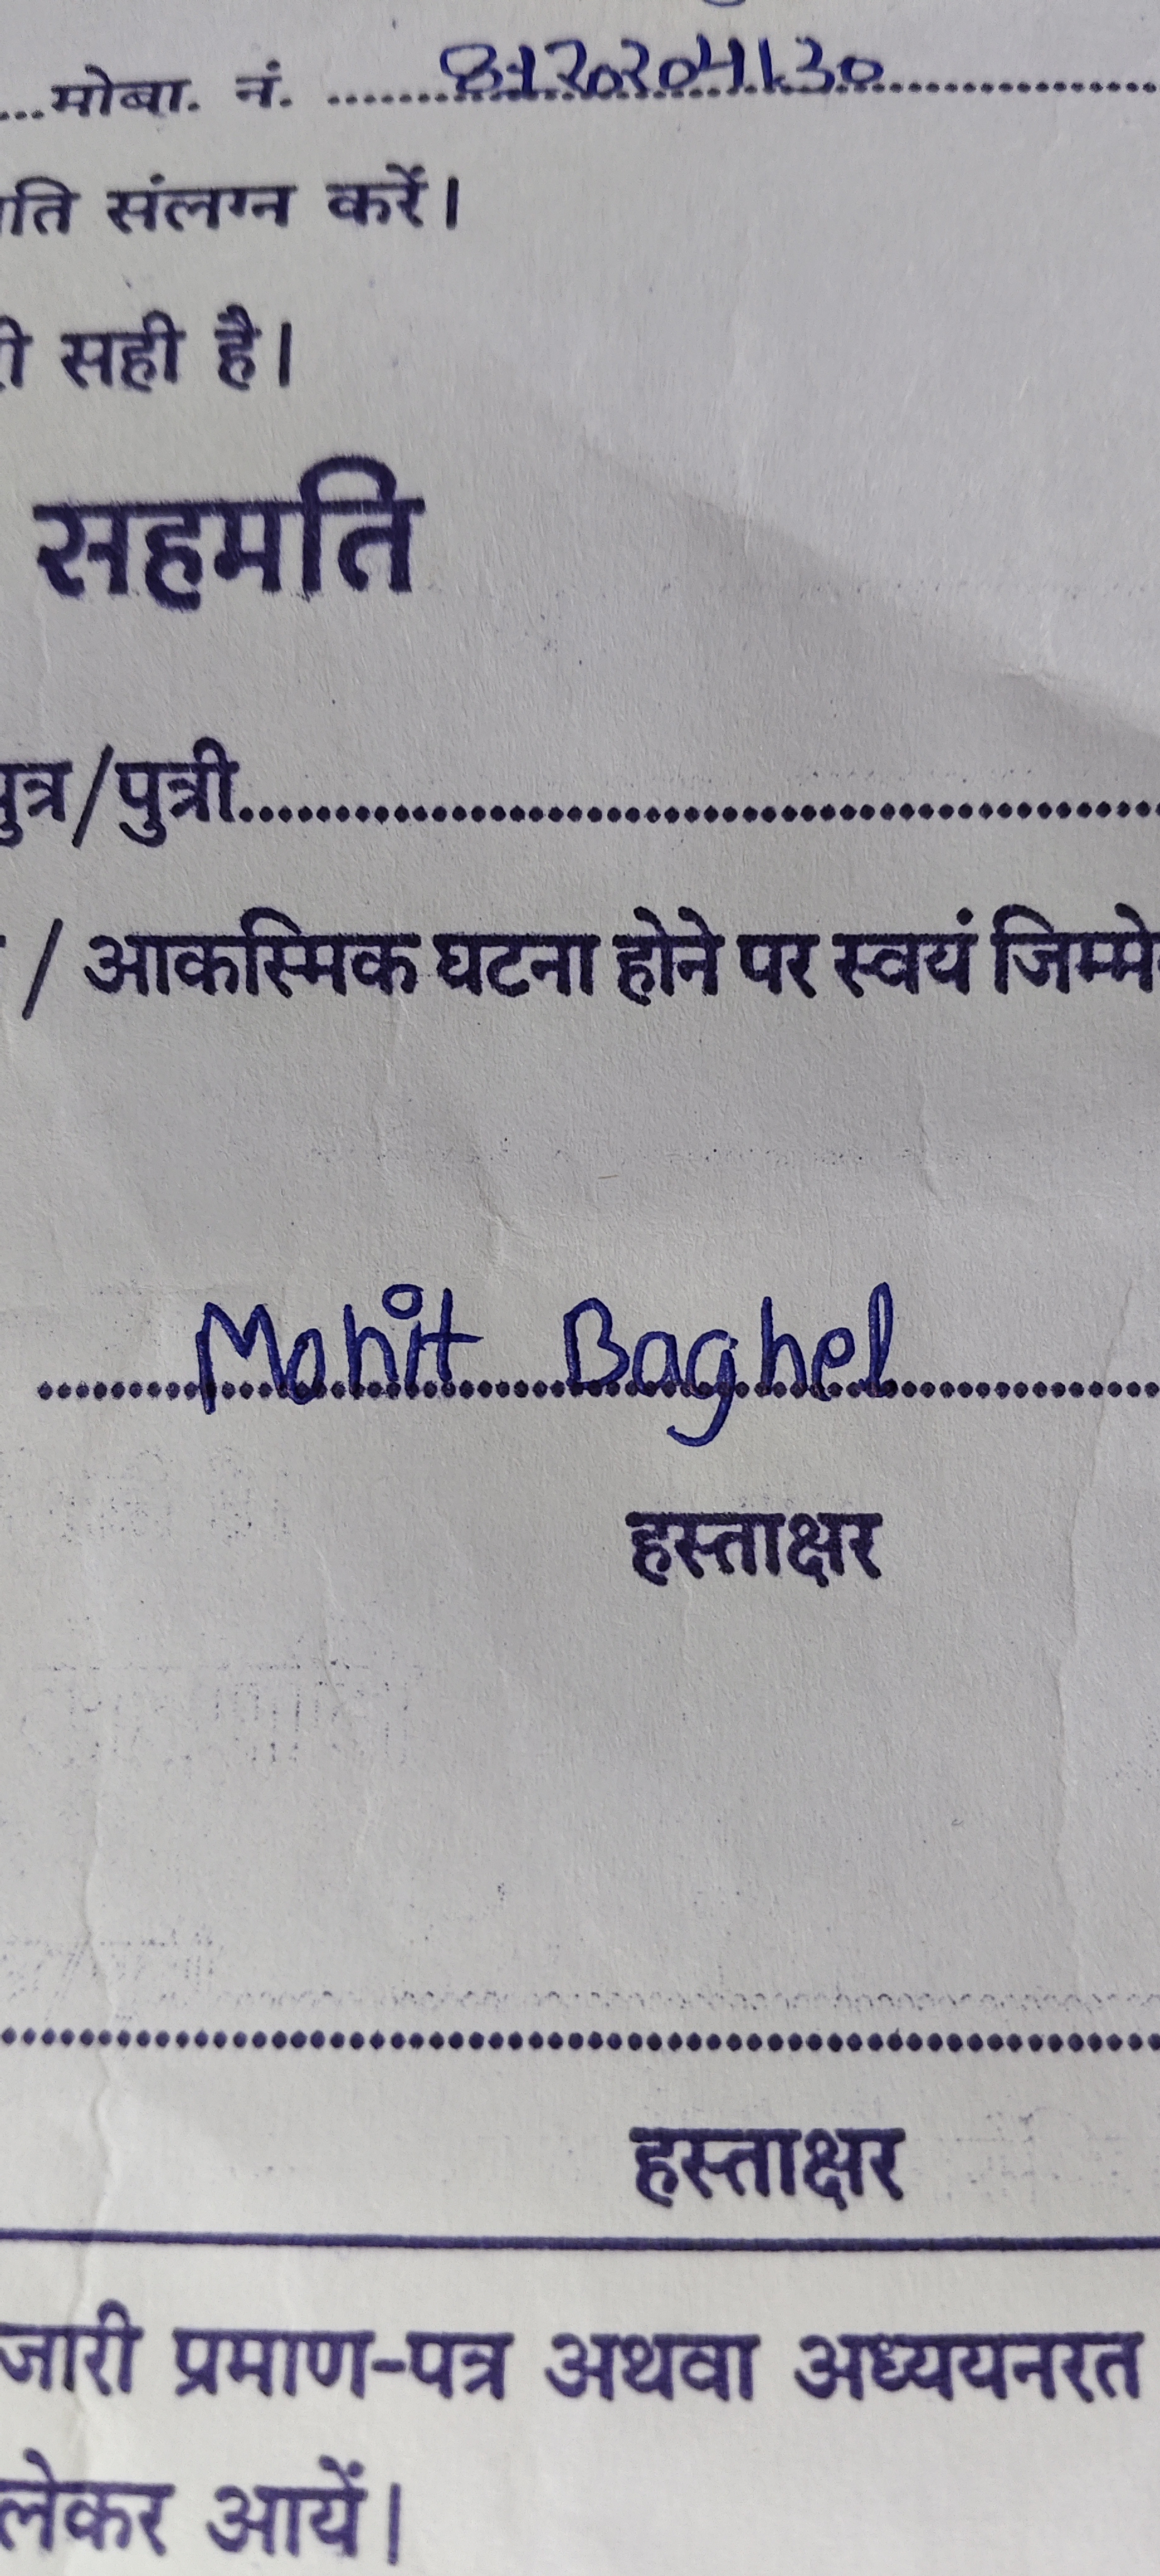 ...मोबा. नं. ........8120204130........
ति संलग्न करें।
सही है।
सहमति
पुत्र/पुत्री..............................
/ आकस्मिक घटना होने पर स्वयं जिम्मे
........Mohit Baghel........
हस्ताक्षर
हस्ताक्षर
जारी प्रमाण-पत्र अथवा अध्ययनरत
लेकर आयें।